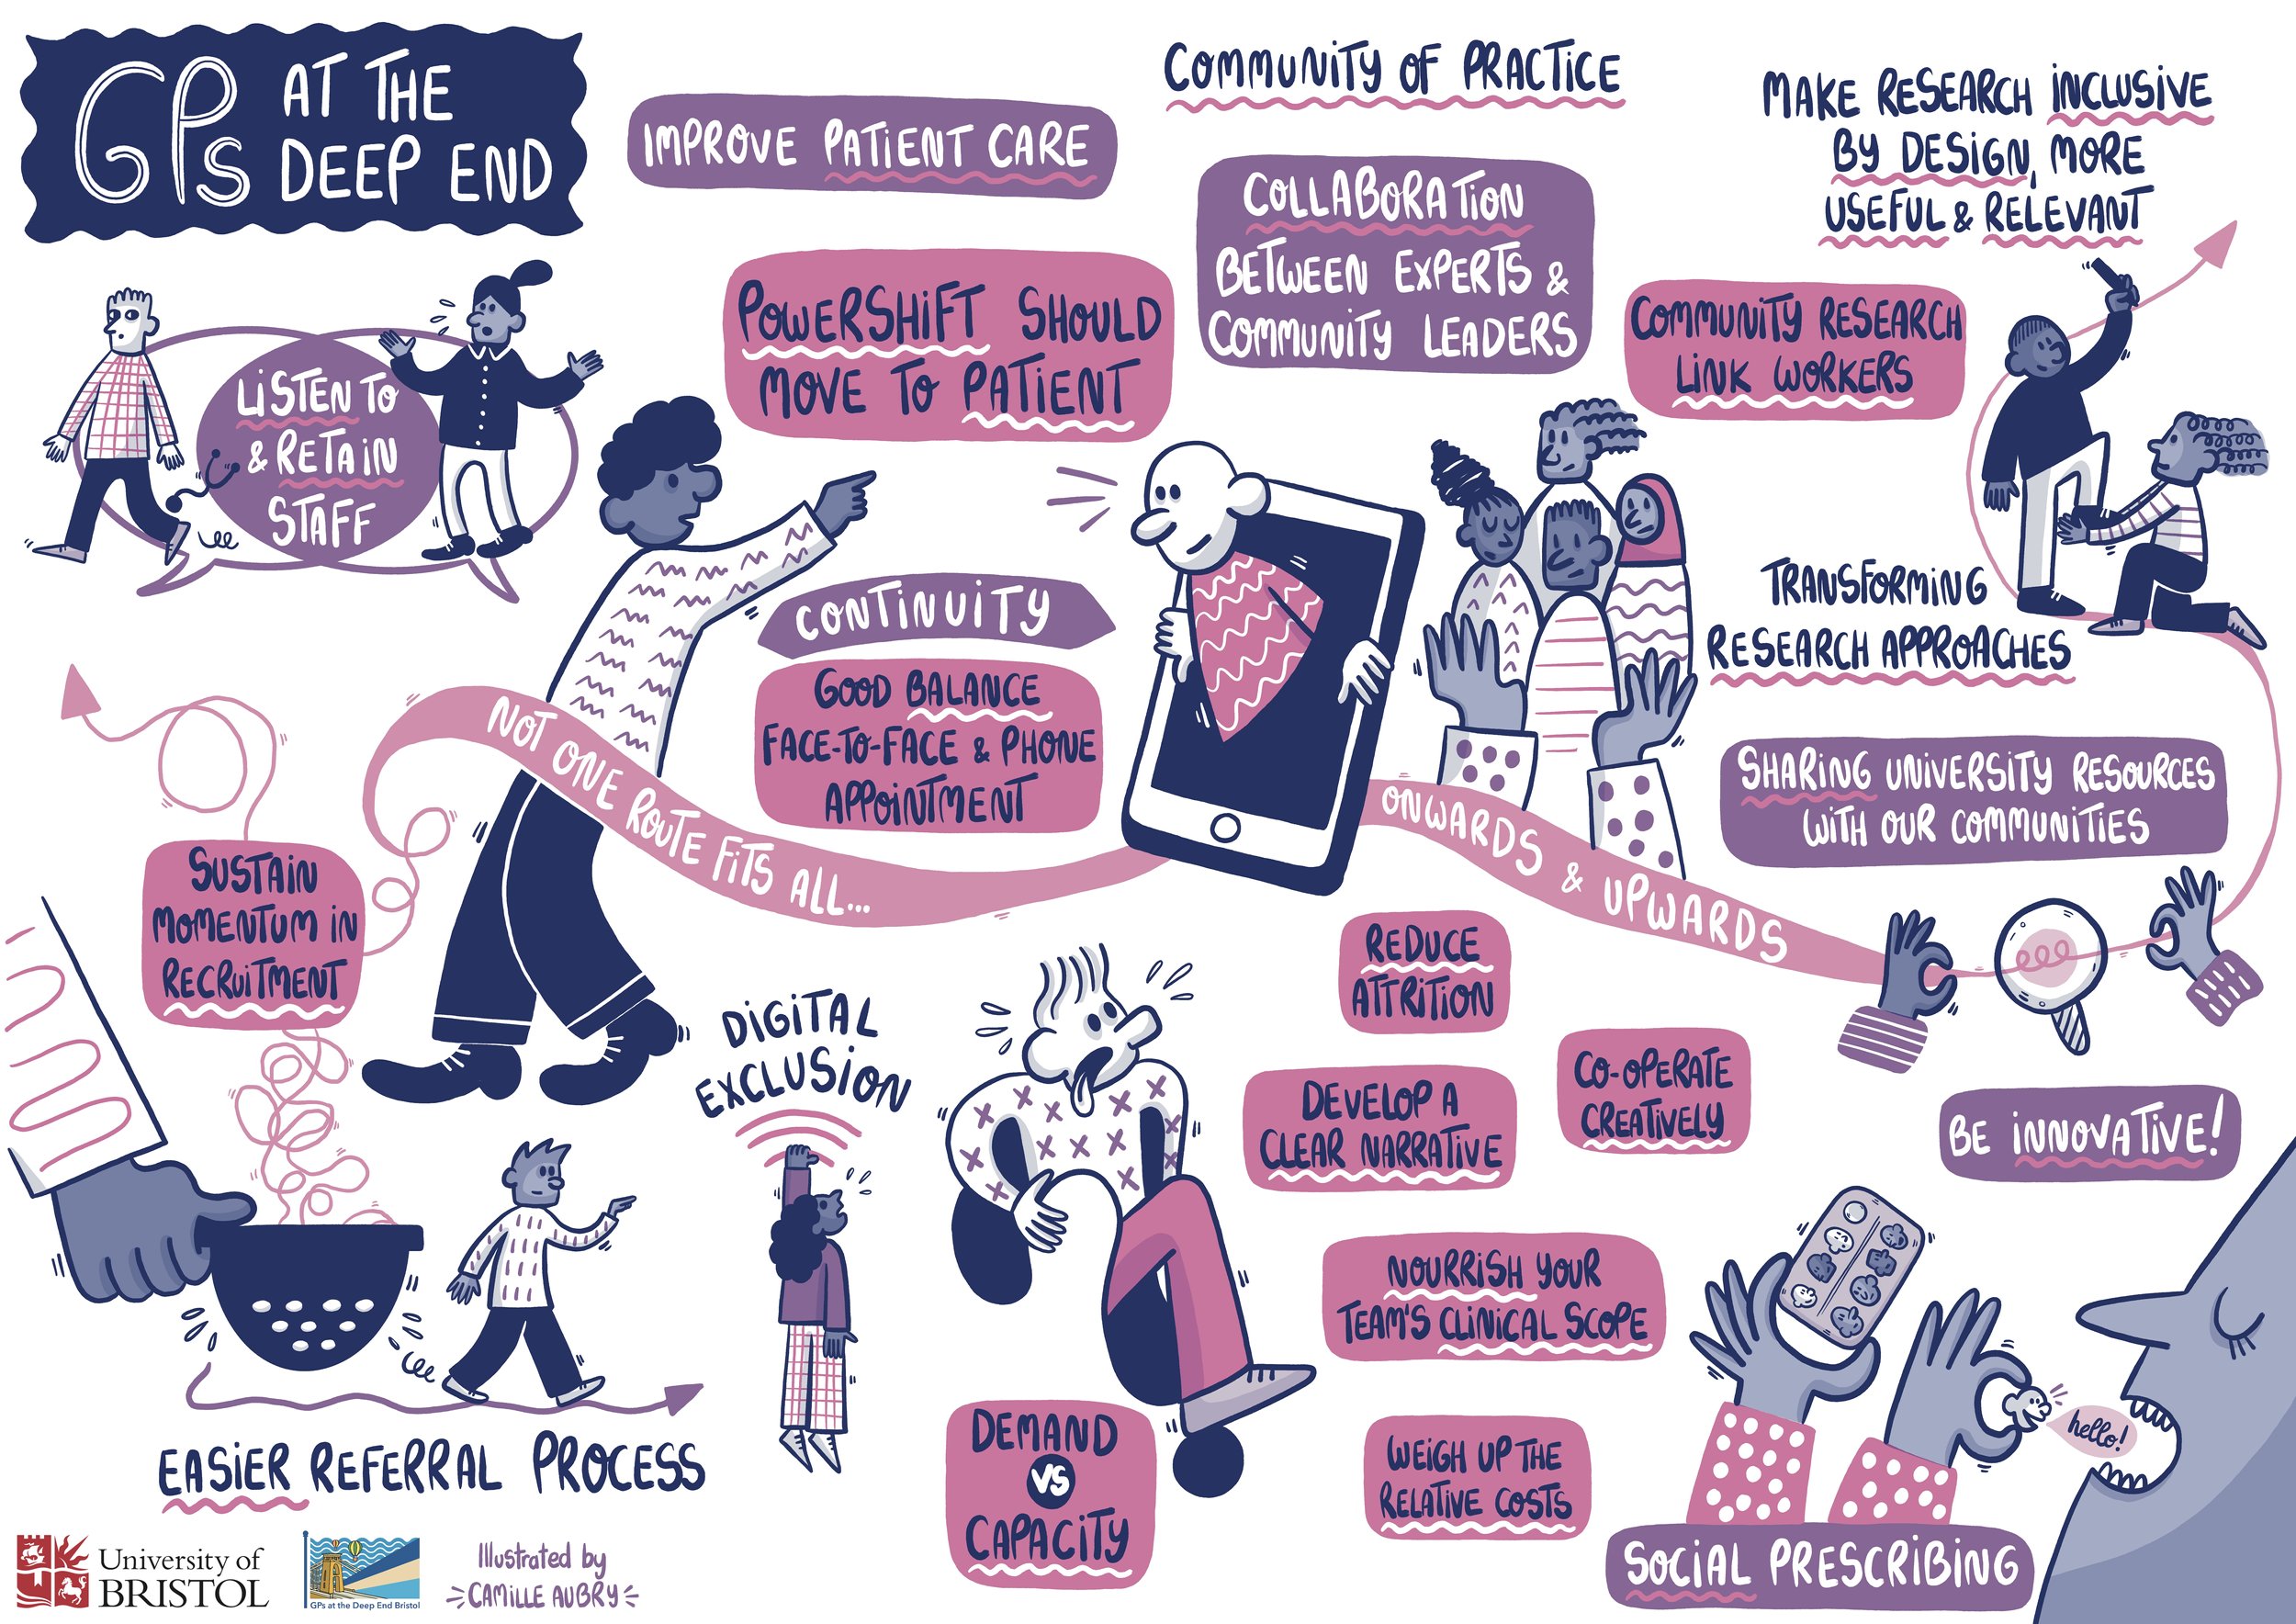 GPs AT THE
DEEP END
IMPROVE PATIENT CARE
COMMUNITY OF PRACTICE
MAKE RESEARCH INCLUSIVE
BY DESIGN, MORE
USEFUL & RELEVANT
COLLABORATION
BETWEEN EXPERTS &
COMMUNITY LEADERS
POWERSHIFT SHOULD
MOVE TO PATIENT
COMMUNITY RESEARCH
LINK WORKERS
LISTEN TO
& RETAIN
STAFF
CONTINUITY
GOOD BALANCE
FACE-TO-FACE & PHONE
APPOINTMENT
TRANSFORMING
RESEARCH APPROACHES
NOT ONE ROUTE FITS ALL...
ONWARDS & UPWARDS
SHARING UNIVERSITY RESOURCES
WITH OUR COMMUNITIES
SUSTAIN
MOMENTUM IN
RECRUITMENT
DIGITAL
EXCLUSION
REDUCE
ATTRITION
DEVELOP A
CLEAR NARRATIVE
CO-OPERATE
CREATIVELY
BE INNOVATIVE!
NOURRISH YOUR
TEAM'S CLINICAL SCOPE
EASIER REFERRAL PROCESS
DEMAND
VS
CAPACITY
WEIGH UP THE
RELATIVE COSTS
hello!
SOCIAL PRESCRIBING
University of
BRISTOL
GPs at the Deep End Bristol
Illustrated by
CAMILLE AUBRY